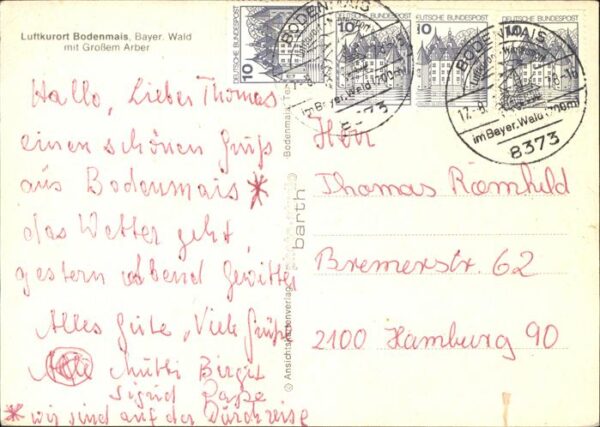 Luftkurort Bodenmais, Bayer. Wald
mit Großem Arber
Hallo, Lieber Thomas
einen schönen Gruß
aus Bodenmais *
das Wetter geht,
gestern Abend Gewitter
Alles Gute, Viele Grüße
Mutti Birgit
Sigrid
* wir sind auf der Durchreise
Bodenmais
© Ansichtskartenverlag
barth
DEUTSCHE BUNDESPOST
10
DEUTSCHE BUNDESPOST
10
DEUTSCHE BUNDESPOST
10
DEUTSCHE BUNDESPOST
BODENMAIS
im Bayer. Wald 700m
8373
BODENMAIS
17.-8.
im Bayer. Wald 700m
8373
Herr
Thomas Römhild
Bremerstr. 62
2100 Hamburg 90